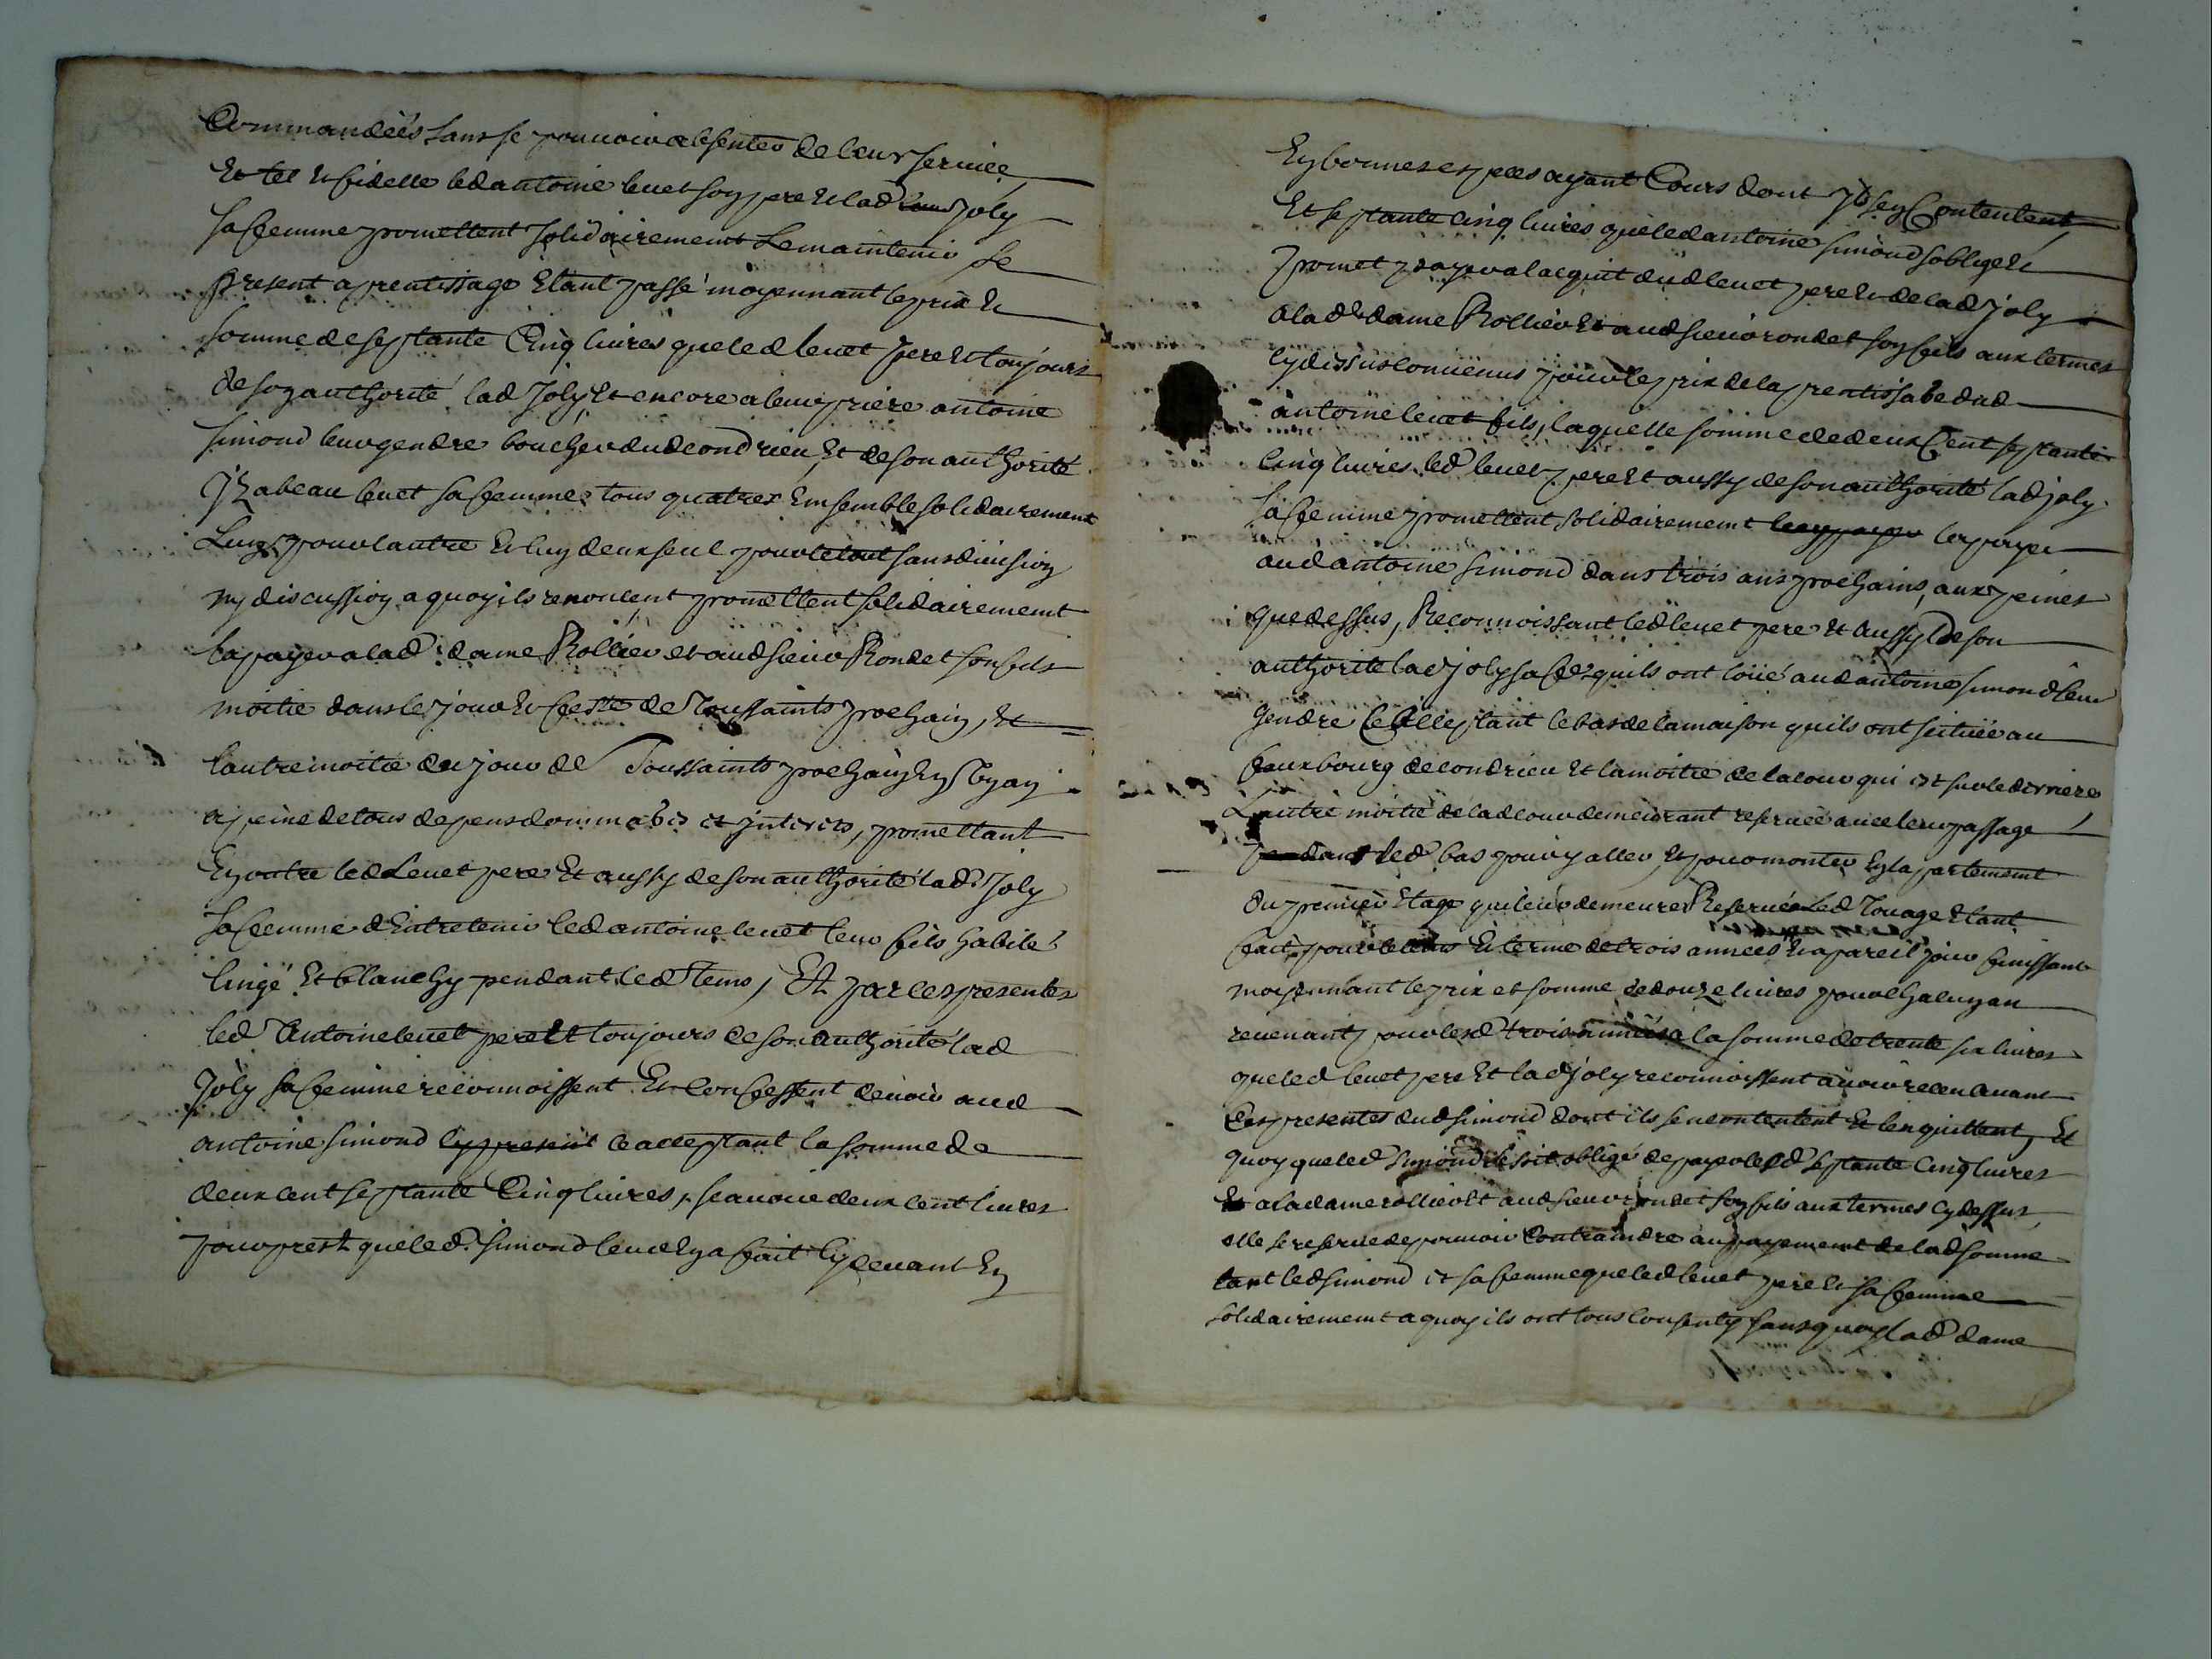 Commandées sans se pouvoir absenter de leur service
Et tel et fidelle led antoine levet son pere et lad Joly
sa femme promettent solidairement Le maintenir Le
present aprentissage Etant passé moyennant le prix et
somme de septante Cinq livres que led levet pere Et toujours
de son authorité lad Joly Et encore a leur priere antoine
simond leur gendre boucher dud condrieu, Et de son authorité
Yzabeau levet sa femme tous quatres Ensemble solidairement
Lung pour lautre Et lung deux seul pour le tout sans division
ny discussion a quoy ils renoncent promettent solidairement
la payer a lad. dame Rollier et aud sieur Rondet son fils
moitie dans le jour Et feste de Toussaints prochain, Et
lautre moitie du jour de Toussaints prochain En Un an
a peine de tous depens dommages et jnterets, promettant
En outre led Levet pere Et aussy de son authorité lad. Joly
sa femme dEntretenir led antoine levet leur fils habile
lingé Et blanchy pendant led tems, Et par ces presentes
led Antoine levet pere Et toujours de son authorité lad
Joly sa femme reconnoissent Et Confessent devoir aud
antoine simond cy present Ce acceptant la somme de
deux cent septante Cinq livres, scavoir deux cent livres
pour prest que led. simond leur En a fait cy devant En
En bonnes especes ayant Cours dont Jls sen Contentent
Et septante Cinq livres que led antoine simond soblige Et
promet payer a lacquit dud levet pere Et de lad Joly
a lad. dame Rollier Et aud sieur rondet son fils aux termes
cy dessus convenus pour le prix de laprentissage dud
antoine levet fils, laquelle somme de deux Cent septante
Cinq livres led levet pere Et aussy de son authorité lad joly
sa femme promettent solidairement la payer
aud antoine simond dans trois ans prochains, aux peines
que dessus, Reconnoissant led levet pere Et aussy de son
authorité lad joly sa fe. quils ont loüé aud antoine simond leur
gendre Ce acceptant le bas de la maison quils ont scituée au
fauxbourg de condrieu Et la moitie de la cour qui est sur le derriere
Lautre moitie de lad cour demeurant reservée avec leur passage
dans led bas pour y aller, Et pour monter En lapartement
du premier Etage qui leur demeure Reservée Led loüage Etant
fait pour le tems Et terme de trois années Et a pareil jour finissant
moyennant le prix et somme de douze livres pour chacun an
revenant pour lesd trois années a la somme de trente six livres
que led levet pere Et lad joly reconnoissent avoir receu avant
Ces presentes dud simond dont ils se ne contentent Et len quittent, Et
quoy que led simond se soit obligé de payer lesd septante Cinq livres
a la dame rollier Et aud sieur rondet son fils aux termes cy dessus
elle se reserve de pouvoir Contraindre au payement de lad somme
tant led simond et sa femme que led levet pere Et sa femme
solidairement a quoy ils ont tous consenty sans quoy lad dame